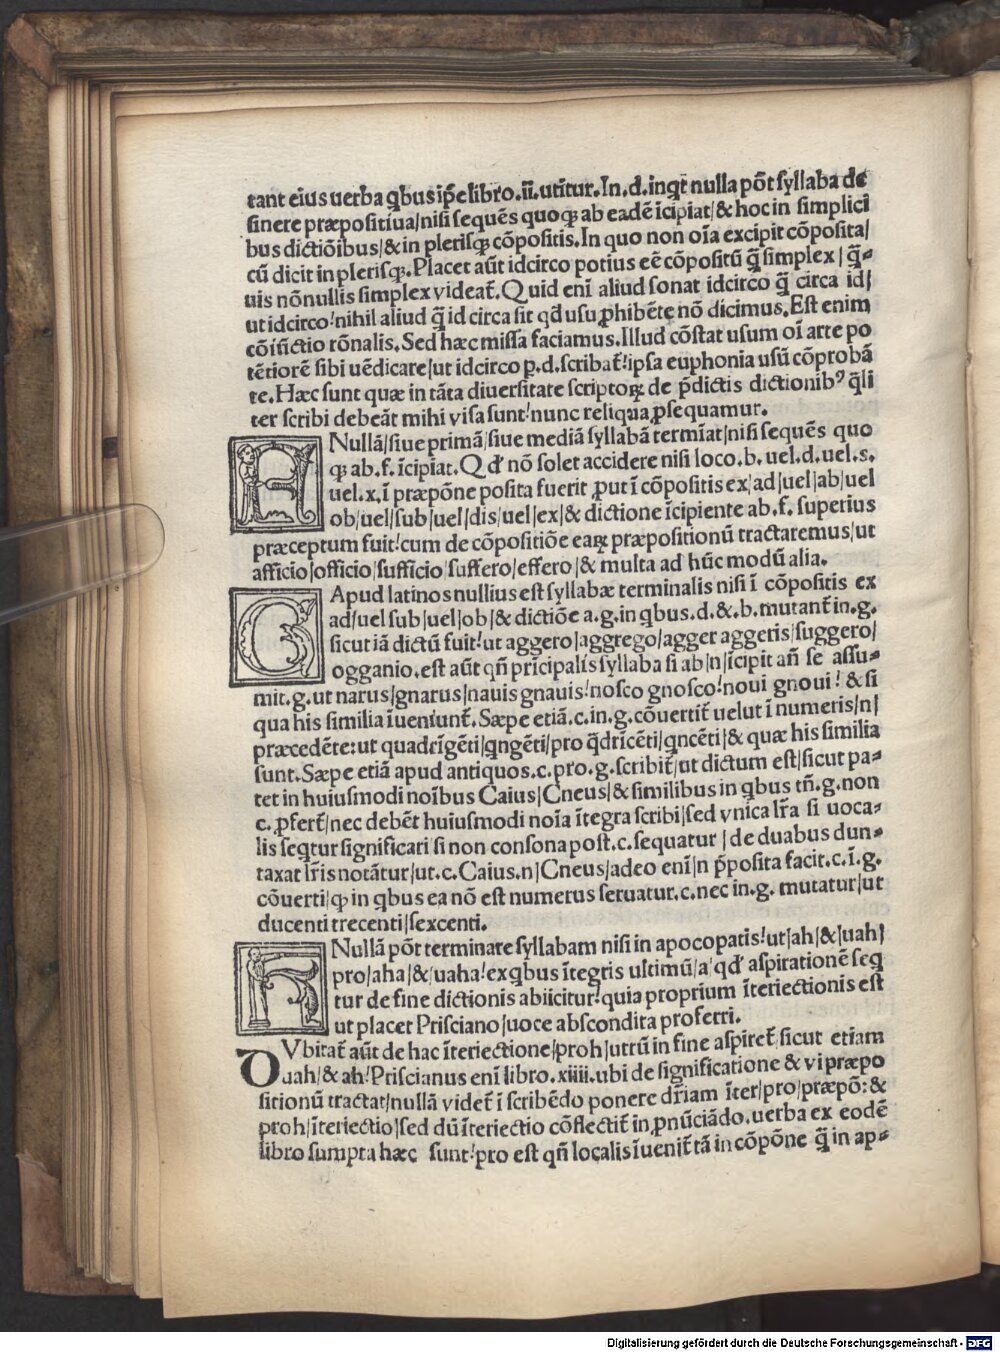 tant eius uerba qbus ip̃e libro.ii.utitur.In.d.inqt nulla põt syllaba de
sinere præpositiua/nisi sequẽs quoqꝫ ab eadẽ ĩcipiat/& hoc in simplici
bus dictiõibus/& in plerisqꝫ cõpositis.In quo non oĩa excipit cõposita/
cũ dicit in plerisqꝫ.Placet aũt idcirco potius eẽ cõpositũ q̃ simplex/q̃-
uis nõnullis simplex videat̃.Quid enĩ aliud sonat idcirco q̃ circa id/
ut idcirco!nihil aliud q̃ id circa sit qd usu ꝓhibẽte nõ dicimus.Est enim
cõiũctio rõnalis.Sed hæc missa faciamus.Illud cõstat usum oĩ arte po
tẽtiorẽ sibi uẽdicare/ut idcirco p.d.scribat̃!ipsa euphonia usũ cõprobã
te.Hæc sunt quæ in tãta diuersitate scriptoꝝ de p̃dictis dictionibꝰ q̃li
ter scribi debeãt mihi visa sunt!nunc reliqua ꝓsequamur.
F Nullã/siue primã/siue mediã syllabã termĩat/nisi sequẽs quo
qꝫ ab.f.ĩcipiat.Qđ nõ solet accidere nisi loco.b.uel.d.uel.s.
uel.x.ĩ præpõne posita fuerit ꝓut ĩ cõpositis ex/ad/uel/ab/uel
ob/uel/sub/uel/dis/uel/ex/& dictione ĩcipiente ab.f.superius
præceptum fuit!cum de cõpositiõe eaꝝ præpositionũ tractaremus/ut
afficio/officio/sufficio/suffero/effero/& multa ad hũc modũ alia.
G Apud latinos nullius est syllabæ terminalis nisi ĩ cõpositis ex
ad/uel sub/uel/ob/& dictiõe a.g.in qbus.d.&.b.mutant̃ in.g.
sicut iã dictũ fuit!ut aggero/aggrego/agger aggeris/suggero/
ogganio.est aũt qñ pricipalis syllaba si ab/n/ĩcipit añ se assu-
mit.g.ut narus/gnarus/nauis gnauis!nosco gnosco!noui gnoui!& si
qua his similia ĩueniunt̃.Sæpe etiã.c.in.g.cõuertit̃ uelut ĩ numeris/n/
præcedẽte:ut quadrĩgẽti/qngẽti/pro q̃dricẽti/qncẽti/& quæ his similia
sunt.Sæpe etiã apud antiquos.c.pro.g.scribit̃/ut dictum est/sicut pa-
tet in huiusmodi noĩbus Caius/Cneus/& similibus in qbus tñ.g.non
c.ꝓfert̃/nec debẽt huiusmodi noĩa ĩtegra scribi/sed vnica lr̃a si uoca-
lis seqtur significari si non consona post.c.sequatur/de duabus dun-
taxat lr̃is notãtur/ut.c.Caius.n/Cneus/adeo enĩ/n p̃posita facit.c.ĩ.g.
cõuerti/qꝫ in qbus ea nõ est numerus seruatur.c.nec in.g.mutatur/ut
ducenti trecenti/sexcenti.
H Nullã põt terminare syllabam nisi in apocopatis!ut/ah/&/uah/
pro/aha/&/uaha!ex qbus ĩtegris ultimũ/a/qđ aspirationẽ seq
tur de fine dictionis abiicitur!quia proprium ĩteriectionis est
ut placet Prisciano/uoce abscondita proferri.
DVbitat̃ aũt de hac ĩteriectione/proh/utrũ in fine aspiret̃ sicut etiam
uah/& ah!Priscianus enĩ libro.xiiii.ubi de significatione & vi præpo
sitionũ tractat/nullã videt̃ ĩ scribẽdo ponere dr̃iam ĩter/pro/præpõ:&
proh/ĩteriectio/sed dũ ĩteriectio cõflectit̃ in ꝓnũciãdo.uerba ex eodẽ
libro sumpta hæc sunt!pro est qñ localis ĩuenit̃ tã in cõpõne q̃ in ap-
Digitalisierung gefördert durch die Deutsche Forschungsgemeinschaft - DFG